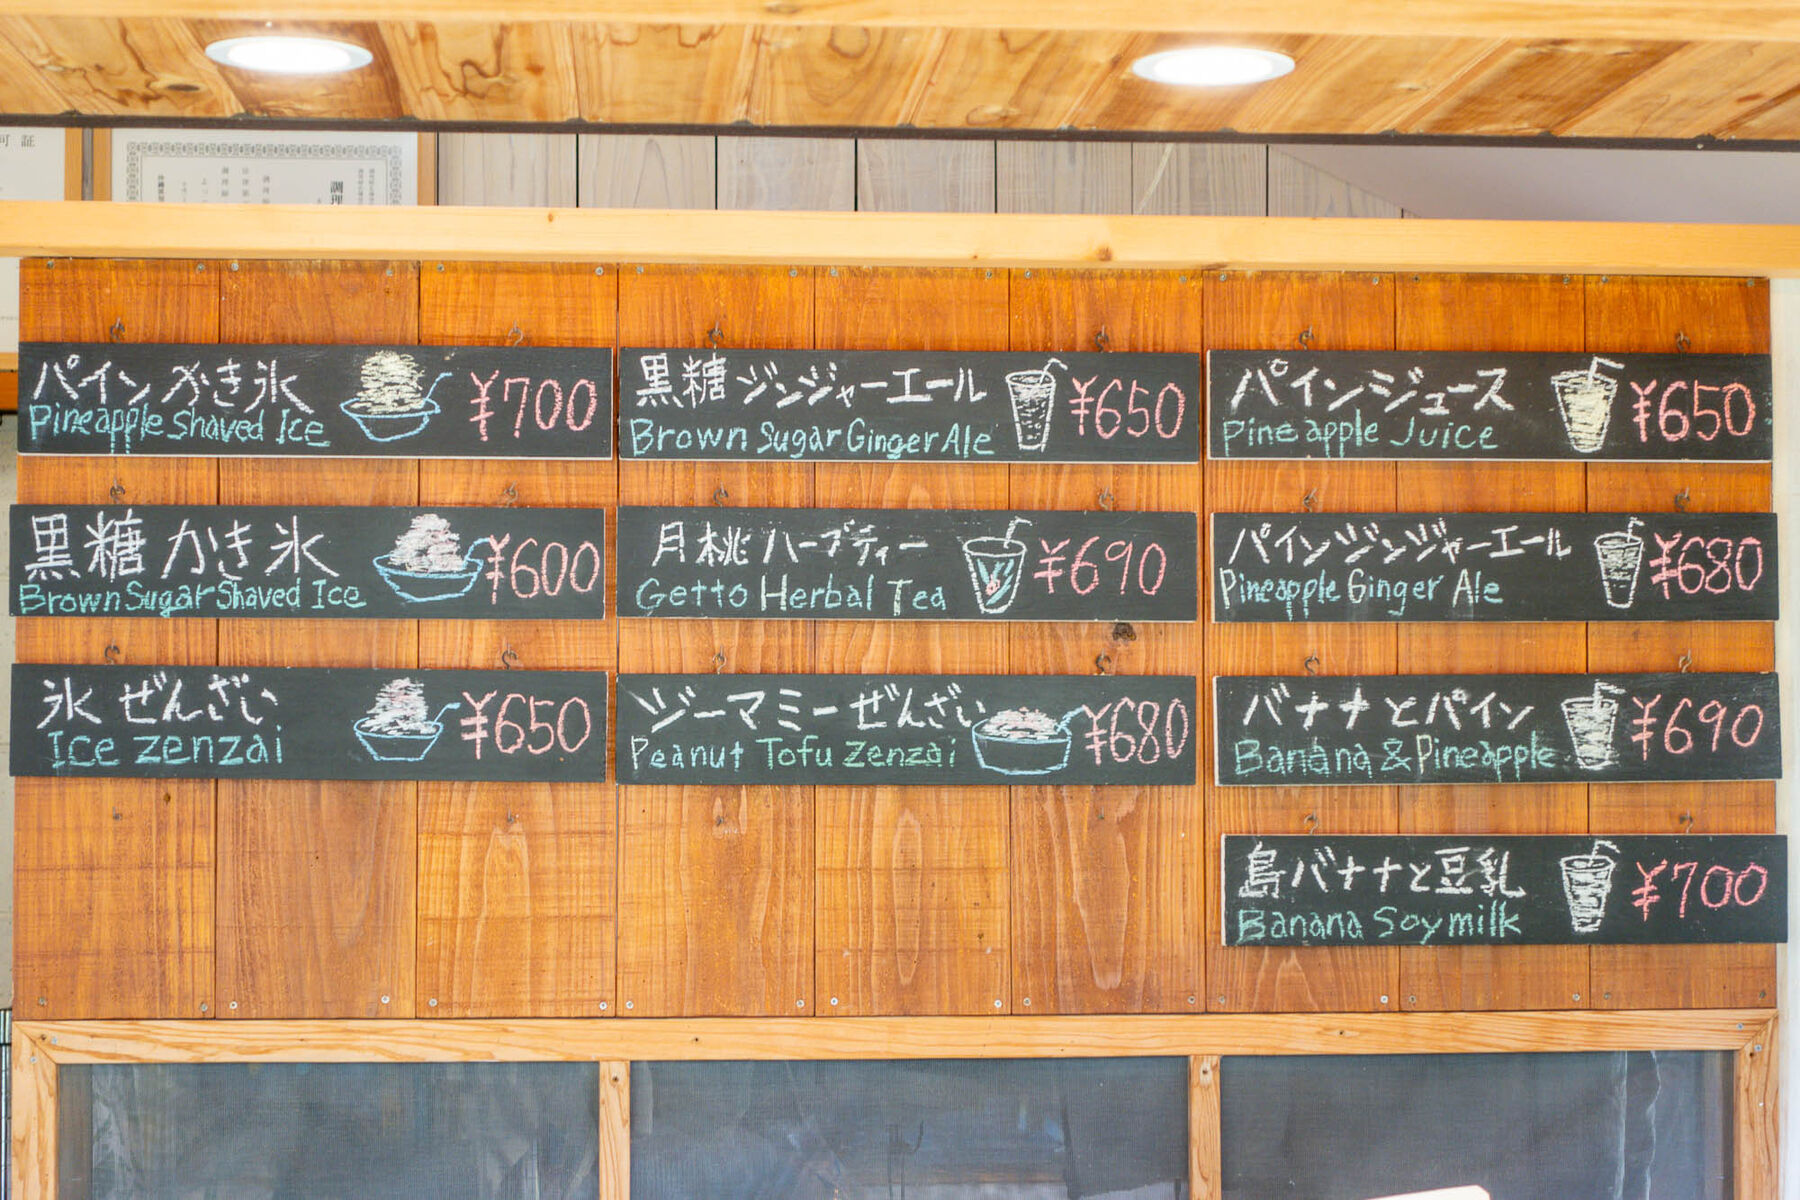 可証
調理
パインかき氷
¥700
Pineapple Shaved Ice
黒糖かき氷
¥600
Brown Sugar Shaved Ice
氷ぜんざい
¥650
Ice zenzai
黒糖ジンジャーエール
¥650
Brown Sugar Ginger Ale
月桃ハーブティー
¥690
Getto Herbal Tea
ジーマミーぜんざい
¥680
Peanut Tofu zenzai
パインジュース
¥650
Pineapple Juice
パインジンジャーエール
¥680
Pineapple Ginger Ale
バナナとパイン
¥690
Banana & Pineapple
島バナナと豆乳
¥700
Banana Soymilk